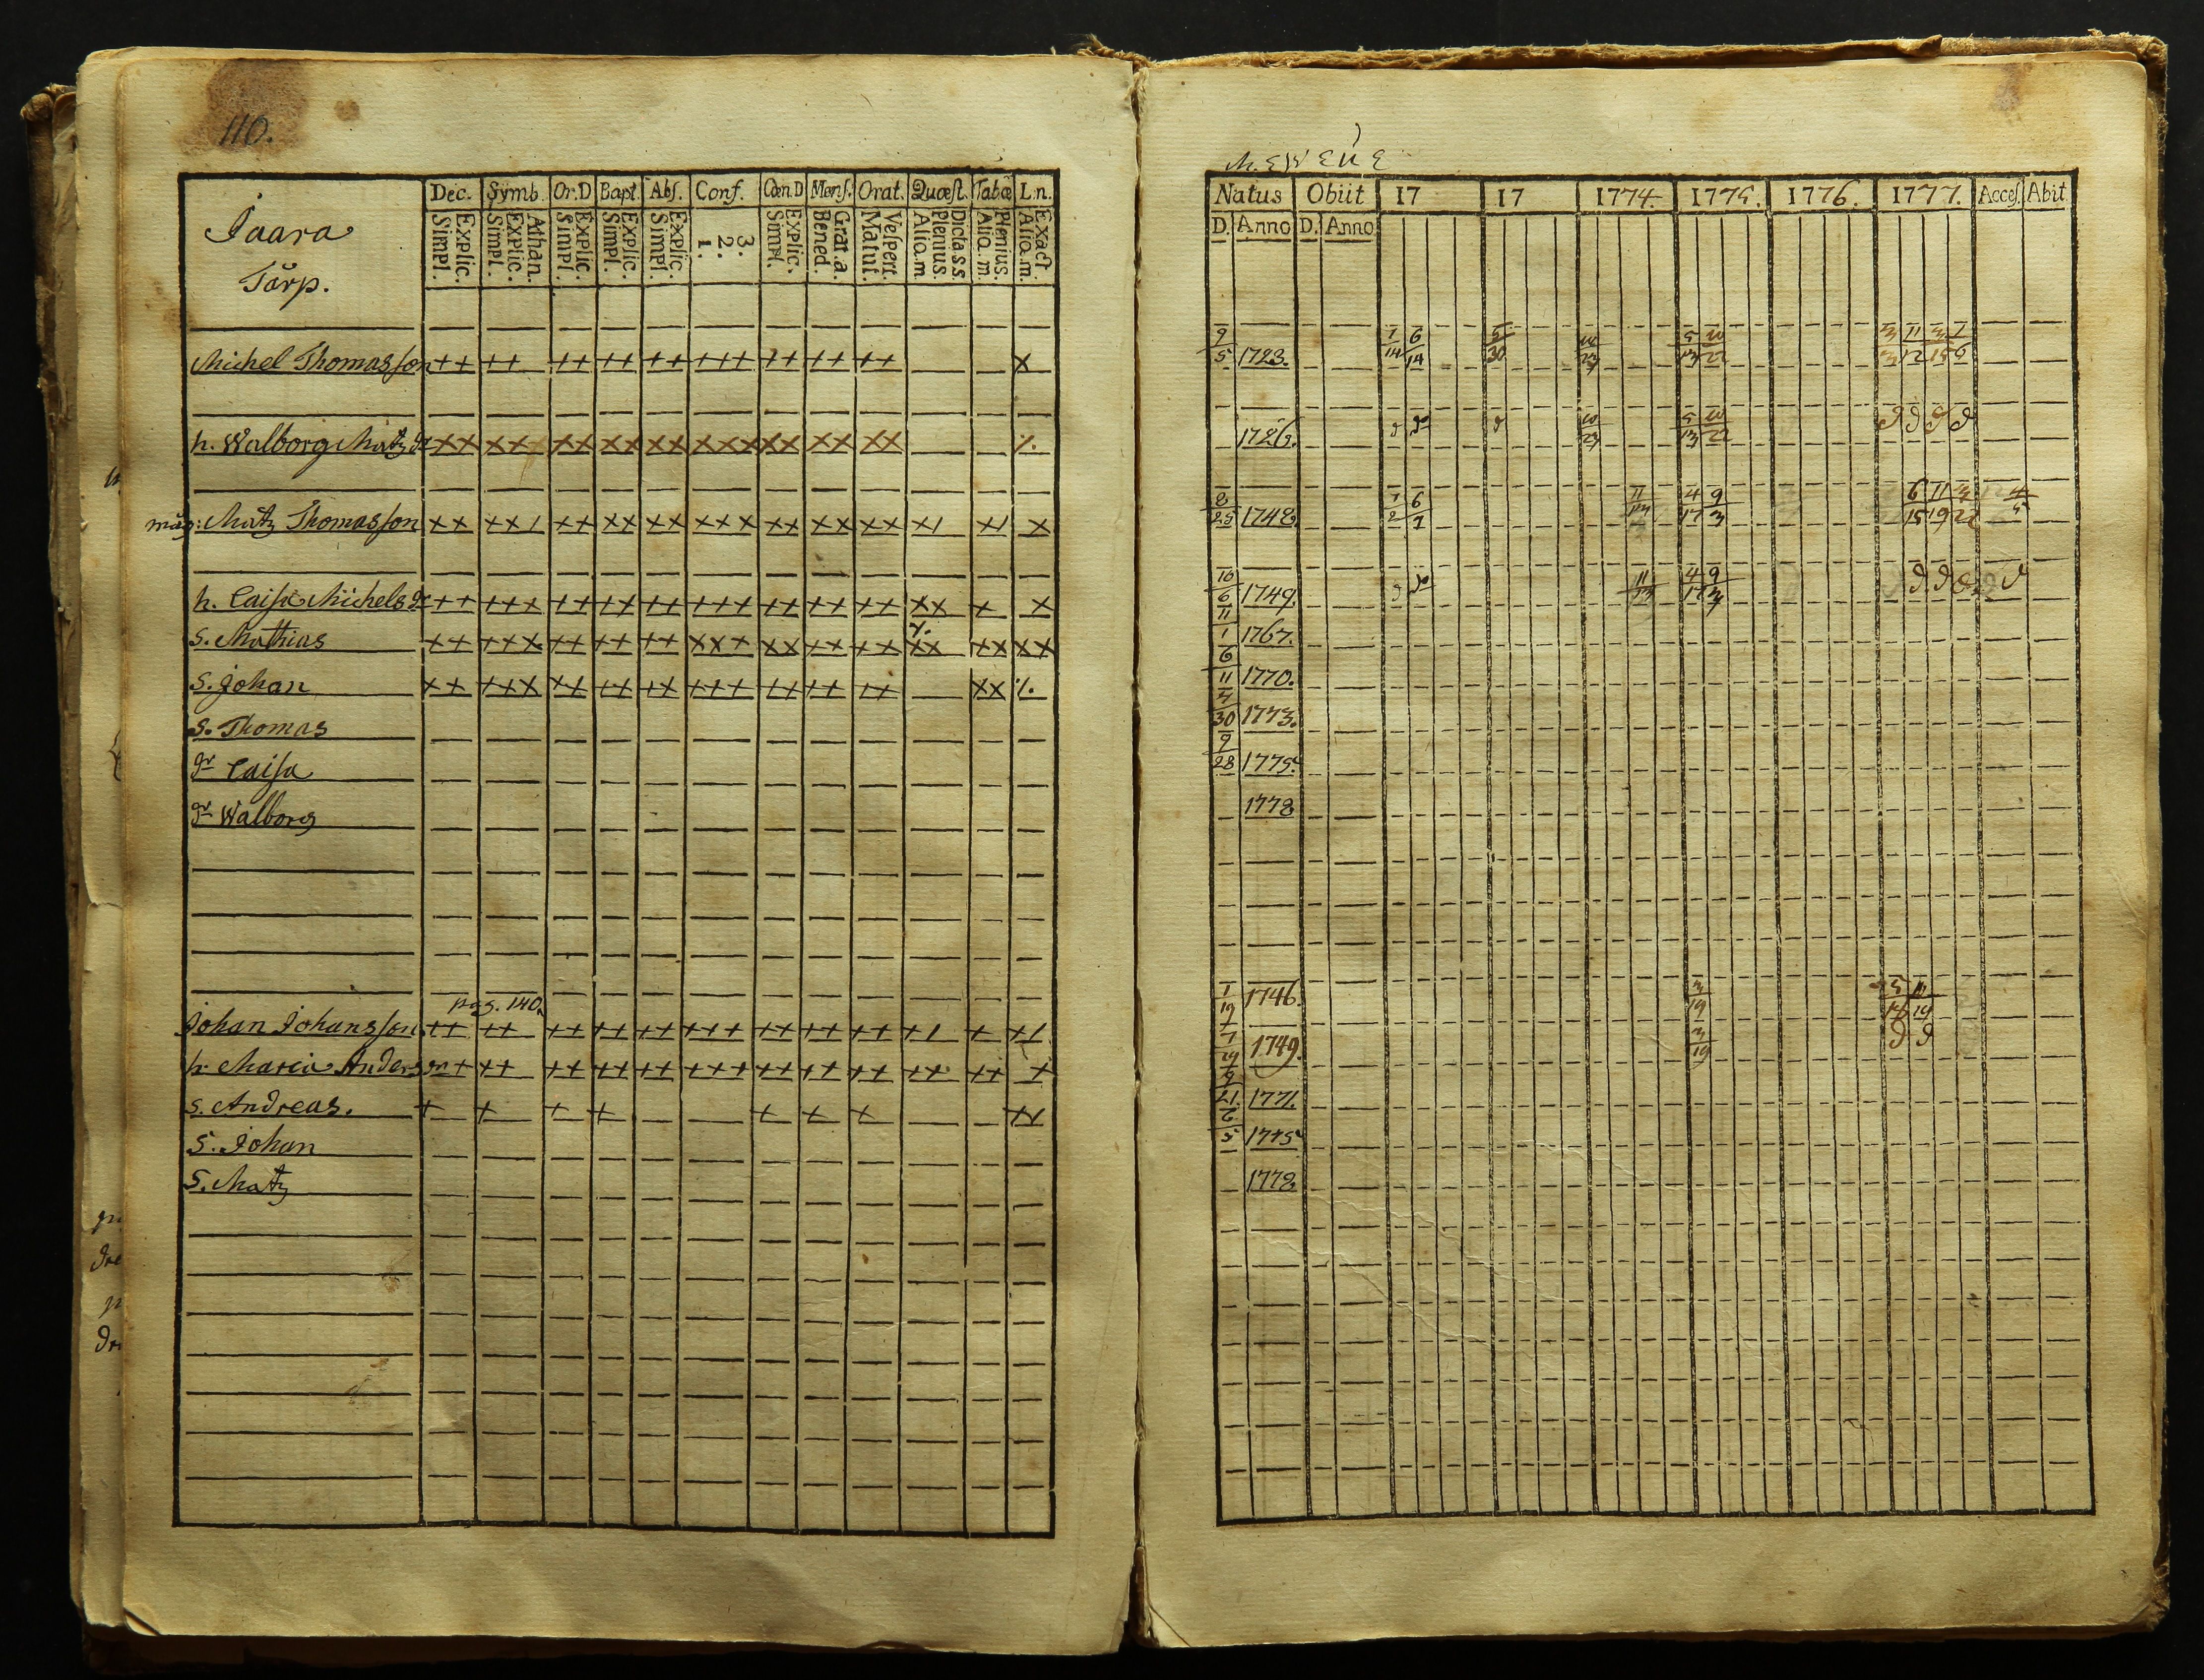 110.
Jaara
Torp.
Dec. Symb. Or.D Bapt. Abs. Conf. Cœn.D Mens. Orat. Quæst. Tabæ L.n.
Explic. Simpl. Athan. Explic. Simpl. Explic. Simpl. Explic. Simpl. Explic. Simpl. 3. 2. 1. Explic. Simpl. Grat.a. Bened. Vespert. Matut. Dicla s.s. Plenius. Aliq.m Plenius. Aliq.m. Exact Aliq.m.
Michel Thomasson ++ ++ ++ ++ ++ +++ ++ ++ ++ x
h. Walborg Matz dr xx xxx xx xx xx xxx xx xx xx
måg: Matz Thomasson xx xx/ xx xx xx xxx xx xx xx x/ x/ x
h. Caisa Michels dr ++ +++ ++ ++ ++ +++ ++ ++ ++ xx + x
S. Mathias ++ +++ ++ ++ ++ xx+ xx ++ ++ xx xx xx
S. Johan ++ +++ ++ ++ ++ +++ ++ ++ ++ xx
S. Thomas
dr Caisa
dr Walborg
pag. 140.
Johan Johansson ++ ++ ++ ++ ++ +++ ++ ++ ++ +/ + +/
h. Maria Anders dr + ++ ++ ++ ++ +++ ++ ++ ++ ++ ++ +
S. Andreas. + + + + + + + ++
S. Johan
S. Matz
Natus Obiit 17 17 1774. 1775. 1776. 1777. Acces. Abit
D. Anno D. Anno
9/5 1723. 1/14 6/14 5/30 10/23 5/13 10/22 3/3 11/12 3/15 1/6
1726. 10/23 5/13 10/22
2/25 1748 1/2 6/1 11/13 4/17 9/3 6/15 11/19 3/22 4/5
10/6 1749. 11/13 4/17 9/3
11/1 1767.
6/11 1770.
11/30 1773.
9/28 1775.
1778
1/19 1746. 3/19 5/16 10/19
1749. 3/19
1771.
5 1775
1778